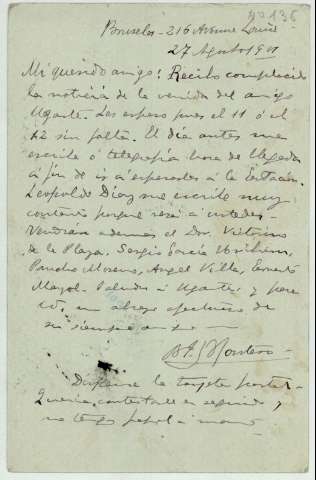 Nº 136
Bruselas - 216 Avenue Louise
27 Agosto 1901
Mi querido amigo: Recibo complacido
la noticia de la venida del amigo
Ugarte. Los espero pues el 11 ó el
12 sin falta. El día antes me
escribe ó telegrafía hora de llegada
á fin de ir á esperarles á la Estación.
Leopoldo Díaz me escribe muy
contento porque verá á ustedes.
Vendrán además el Dr. Victorino
de la Plaza, Sergio García Uriburu,
Pancho Moreno, Angel Villa, Ernesto
Mayol. Saludos á Ugarte y para
Ud. un abrazo afectuoso de
su siempre
Montero
Dispense la tarjeta postal.
Quería contestarle en seguida,
no tengo papel á mano